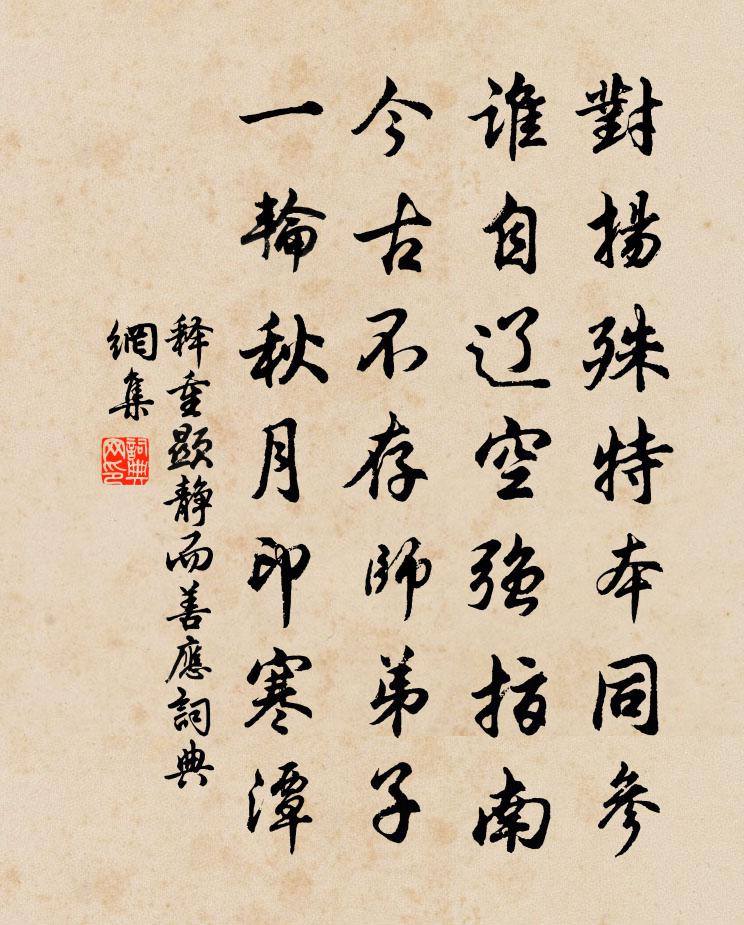 對揚殊特本同參
誰自辽空強指南
今古不存師弟子
一輪秋月印寒潭
释重顯静而善應詞典
網集
詞典
网印